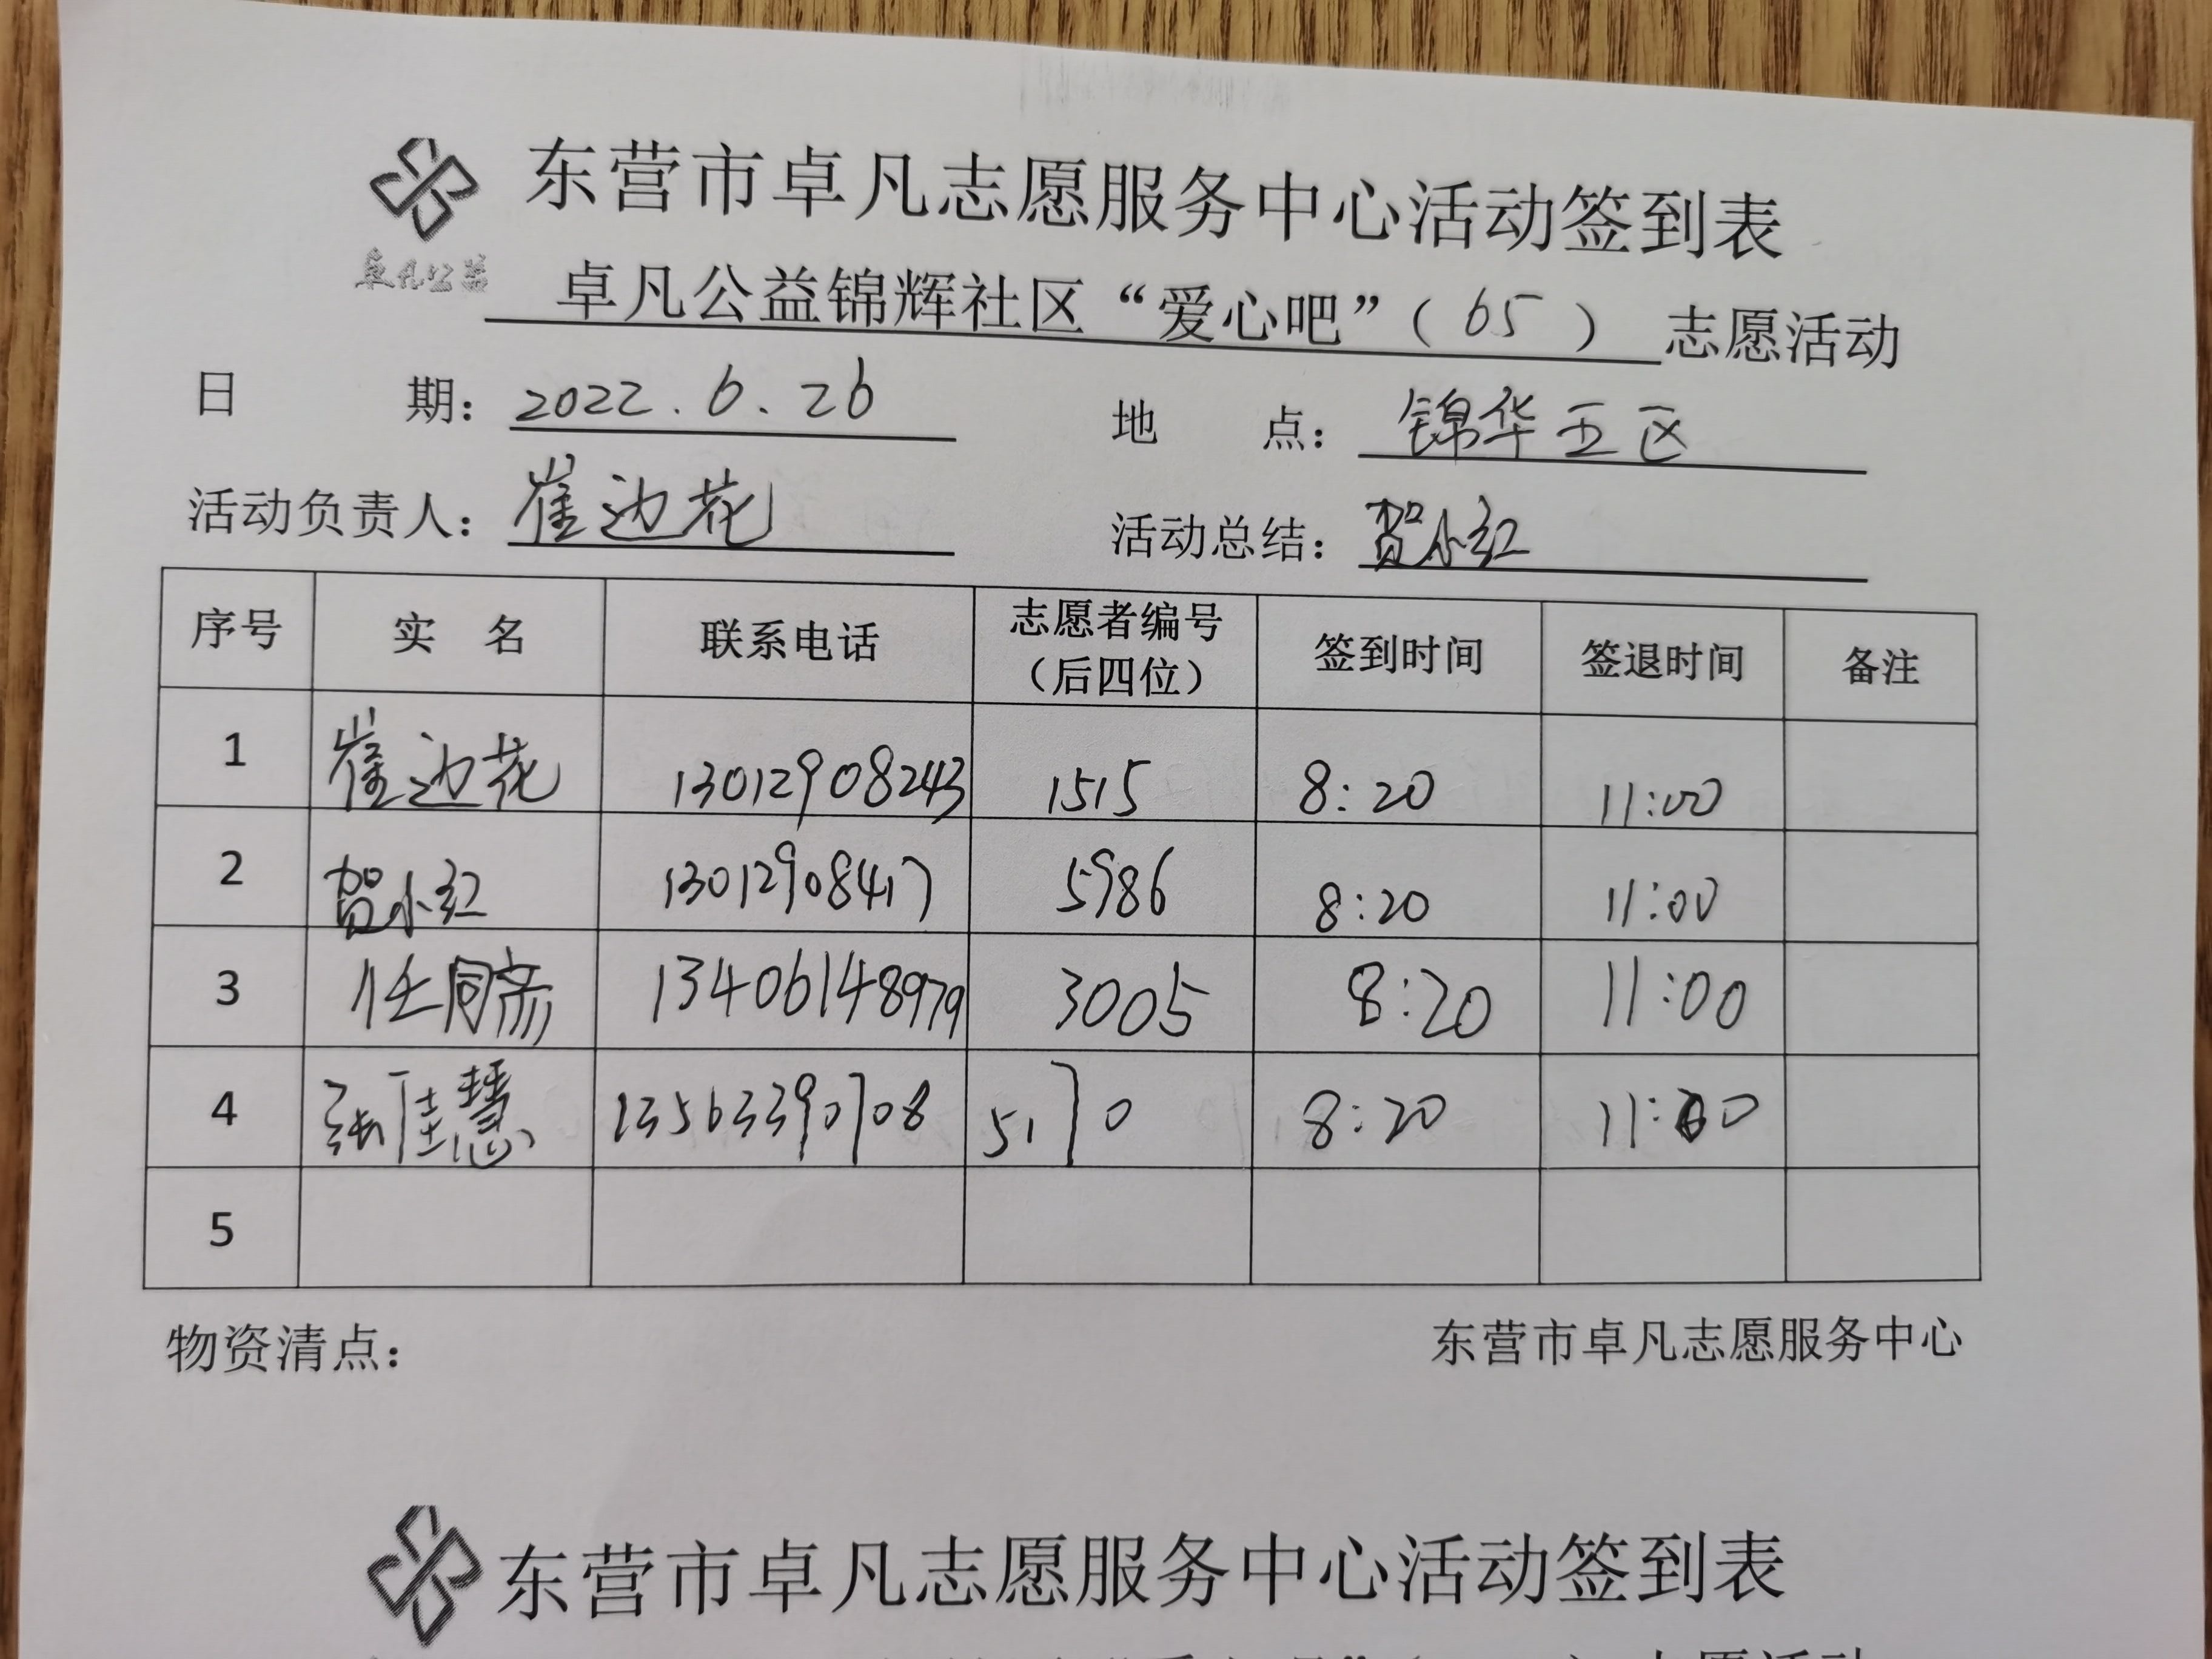 东营市卓凡志愿服务中心活动签到表
卓凡公益
卓凡公益锦辉社区“爱心吧”（65）志愿活动
日期：2022.6.26 地点：锦华五区
活动负责人：崔边花 活动总结：贺小红
序号 实名 联系电话 志愿者编号（后四位） 签到时间 签退时间 备注
1 崔边花 13012908243 1515 8:20 11:00
2 贺小红 13012908417 5986 8:20 11:00
3 任同斋 13406148979 3005 8:20 11:00
4 张佳慧 13563390708 5170 8:20 11:00
5
物资清点： 东营市卓凡志愿服务中心
东营市卓凡志愿服务中心活动签到表